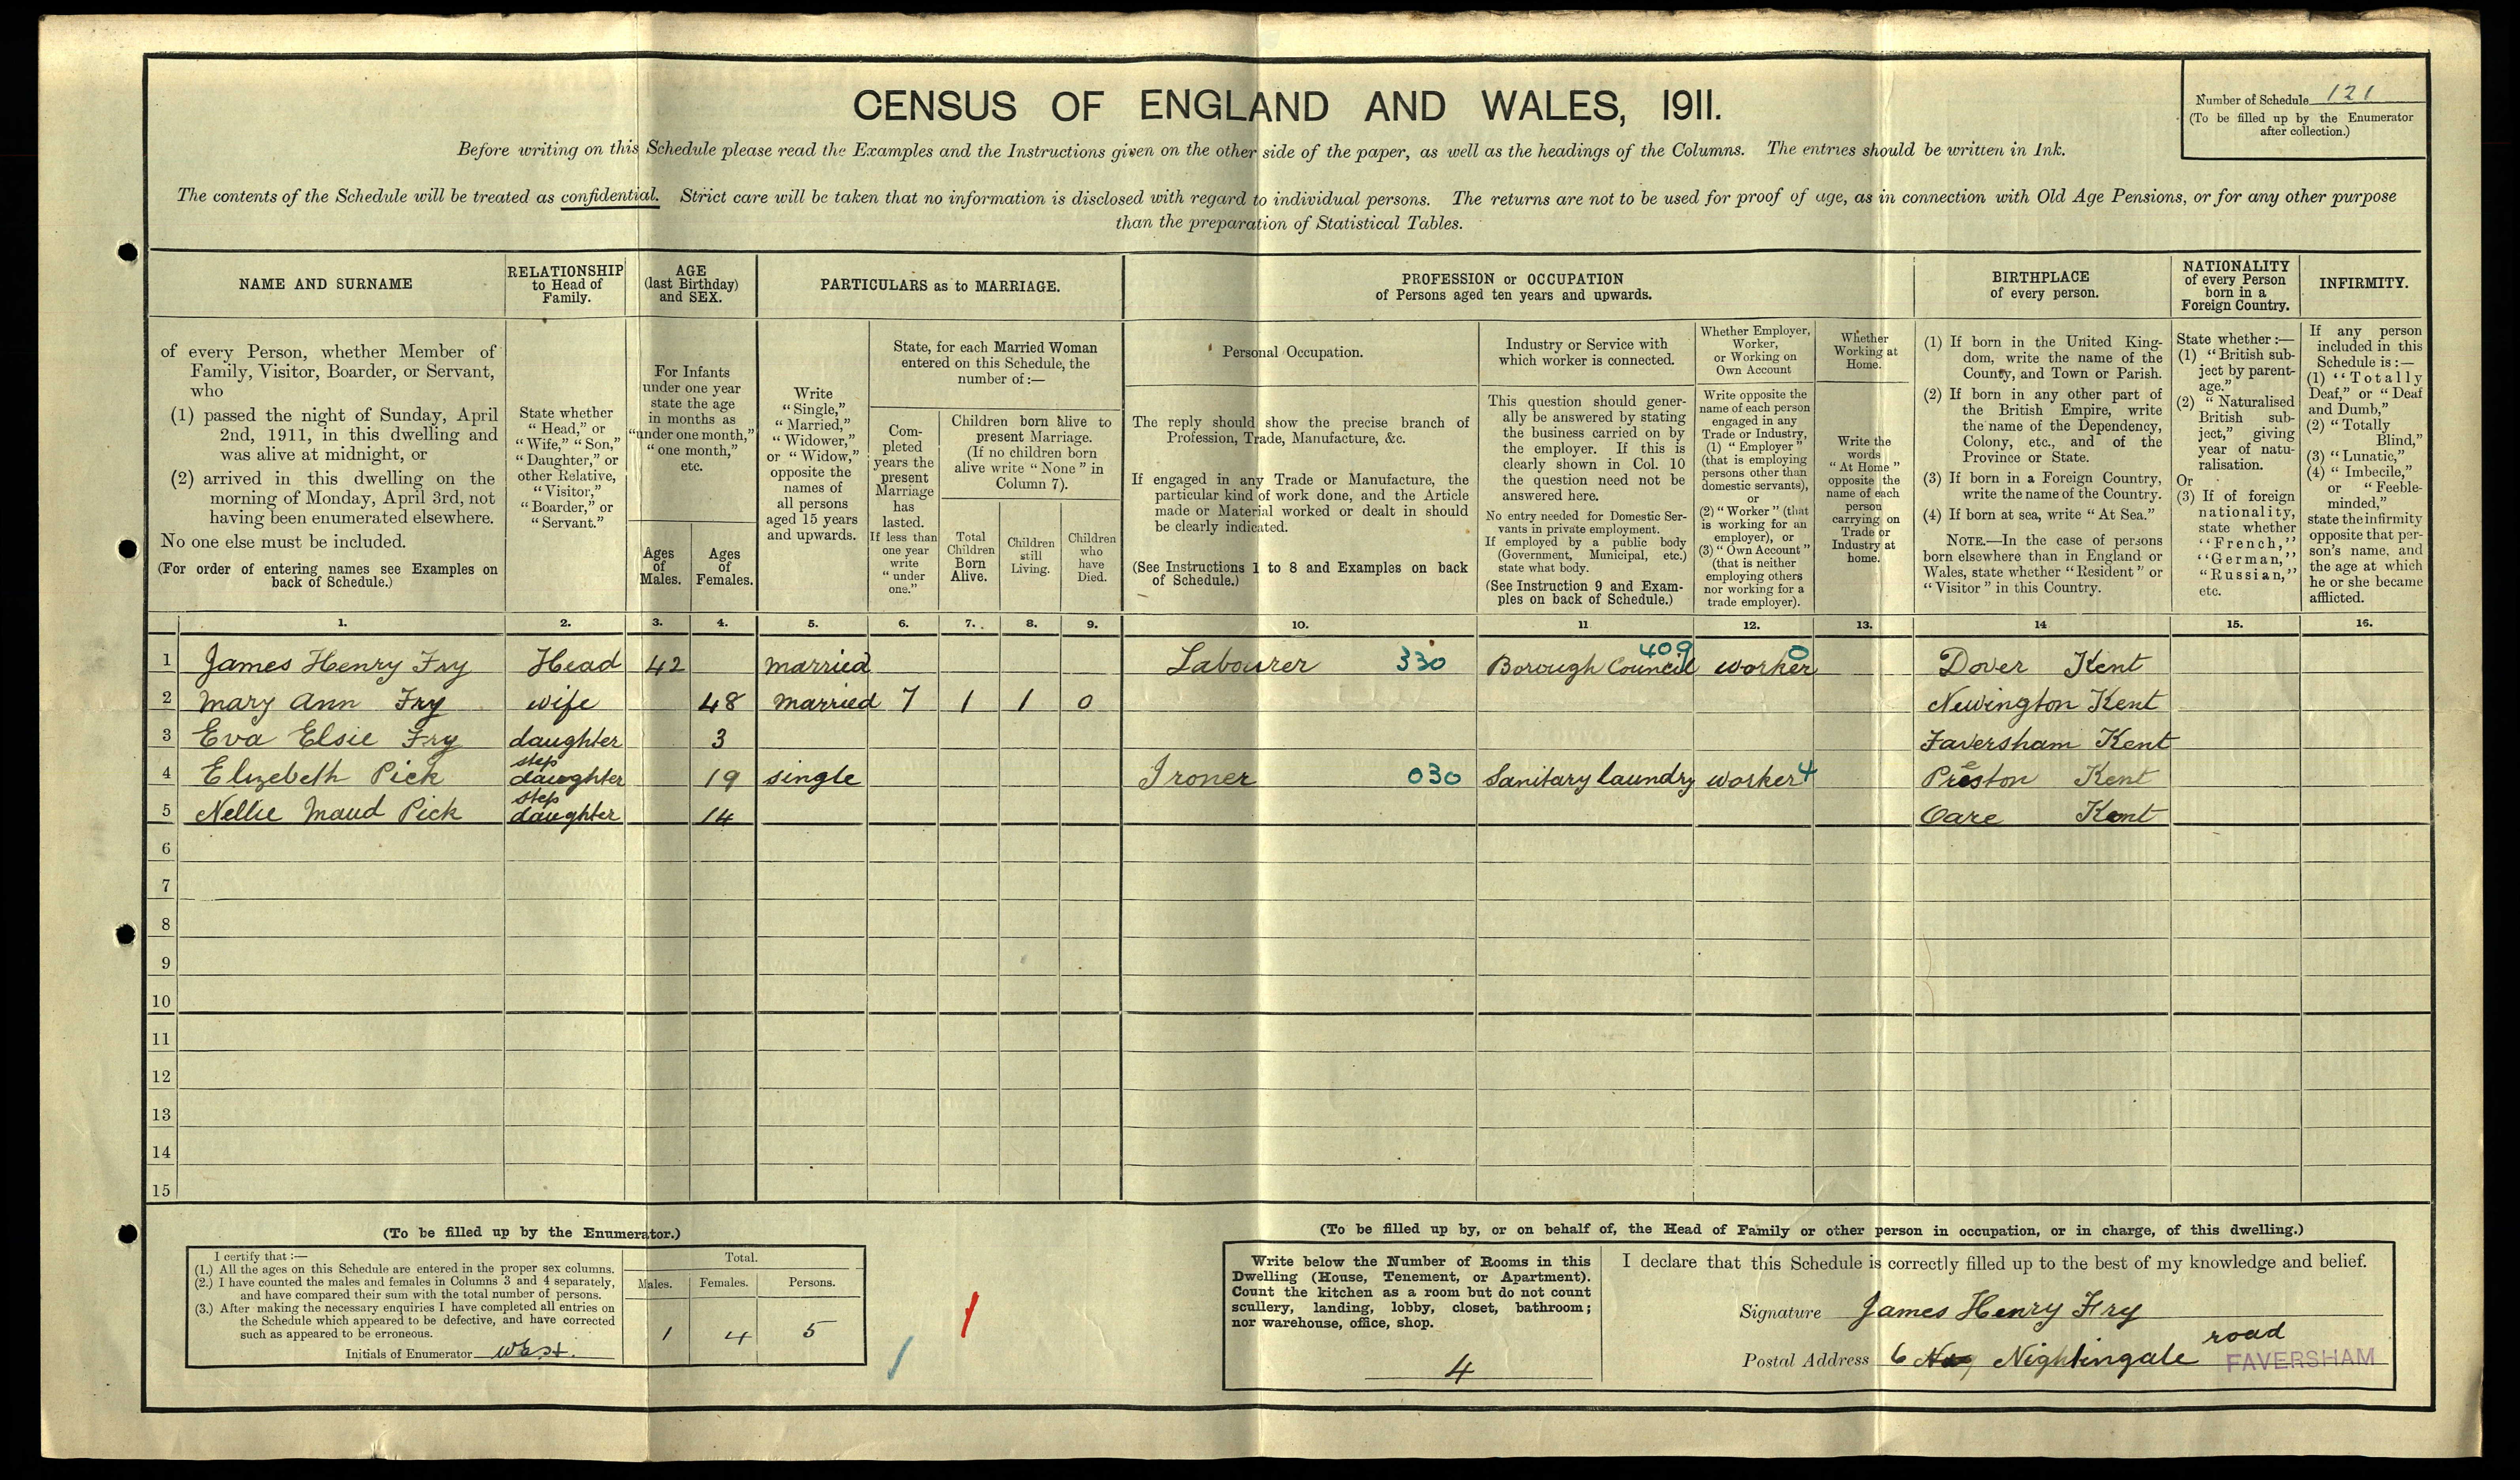 CENSUS OF ENGLAND AND WALES, 1911.
Number of Schedule 121
(To be filled up by the Enumerator
after collection.)
Before writing on this Schedule please read the Examples and the Instructions given on the other side of the paper, as well as the headings of the Columns. The entries should be written in Ink.
The contents of the Schedule will be treated as confidential. Strict care will be taken that no information is disclosed with regard to individual persons. The returns are not to be used for proof of age, as in connection with Old Age Pensions, or for any other purpose
than the preparation of Statistical Tables.
NAME AND SURNAME
RELATIONSHIP
to Head of
Family.
AGE
(last Birthday)
and SEX.
PARTICULARS as to MARRIAGE.
PROFESSION or OCCUPATION
of Persons aged ten years and upwards.
BIRTHPLACE
of every person.
NATIONALITY
of every Person
born in a
Foreign Country.
INFIRMITY.
of every Person, whether Member of
Family, Visitor, Boarder, or Servant,
who
(1) passed the night of Sunday, April
2nd, 1911, in this dwelling and
was alive at midnight, or
(2) arrived in this dwelling on the
morning of Monday, April 3rd, not
having been enumerated elsewhere.
No one else must be included.
(For order of entering names see Examples on
back of Schedule.)
State whether
"Head," or
"Wife," "Son,"
"Daughter," or
other Relative,
"Visitor,"
"Boarder," or
"Servant."
For Infants
under one year
state the age
in months as
"under one month,"
"one month,"
etc.
Ages
of
Males.
Ages
of
Females.
Write
"Single,"
"Married,"
"Widower,"
or "Widow,"
opposite the
names of
all persons
aged 15 years
and upwards.
State, for each Married Woman
entered on this Schedule, the
number of:—
Com-
pleted
years the
present
Marriage
has
lasted.
If less than
one year
write
"under
one."
Children born alive to
present Marriage.
(If no children born
alive write "None" in
Column 7).
Total
Children
Born
Alive.
Children
still
Living.
Children
who
have
Died.
Personal Occupation.
The reply should show the precise branch of
Profession, Trade, Manufacture, &c.
If engaged in any Trade or Manufacture, the
particular kind of work done, and the Article
made or Material worked or dealt in should
be clearly indicated.
(See Instructions 1 to 8 and Examples on back
of Schedule.)
Industry or Service with
which worker is connected.
This question should gener-
ally be answered by stating
the business carried on by
the employer. If this is
clearly shown in Col. 10
the question need not be
answered here.
No entry needed for Domestic Ser-
vants in private employment.
If employed by a public body
(Government, Municipal, etc.)
state what body.
(See Instruction 9 and Exam-
ples on back of Schedule.)
Whether Employer,
Worker,
or Working on
Own Account
Write opposite the
name of each person
engaged in any
Trade or Industry,
(1) "Employer"
(that is employing
persons other than
domestic servants),
or
(2) "Worker" (that
is working for an
employer), or
(3) "Own Account"
(that is neither
employing others
nor working for a
trade employer).
Whether
Working at
Home.
Write the
words
"At Home"
opposite the
name of each
person
carrying on
Trade or
Industry at
home.
(1) If born in the United King-
dom, write the name of the
County, and Town or Parish.
(2) If born in any other part of
the British Empire, write
the name of the Dependency,
Colony, etc., and of the
Province or State.
(3) If born in a Foreign Country,
write the name of the Country.
(4) If born at sea, write "At Sea."
NOTE.—In the case of persons
born elsewhere than in England or
Wales, state whether "Resident" or
"Visitor" in this Country.
State whether:—
(1) "British sub-
ject by parent-
age."
(2) "Naturalised
British sub-
ject," giving
year of natu-
ralisation.
Or
(3) If of foreign
nationality,
state whether
"French,"
"German,"
"Russian,"
etc.
If any person
included in this
Schedule is:—
(1) "Totally
Deaf," or "Deaf
and Dumb,"
(2) "Totally
Blind,"
(3) "Lunatic,"
(4) "Imbecile,"
or "Feeble-
minded,"
state the infirmity
opposite that per-
son's name, and
the age at which
he or she became
afflicted.
1. 2. 3. 4. 5. 6. 7. 8. 9. 10. 11 12. 13. 14 15. 16.
1 James Henry Fry Head 42 married Labourer 330 Borough Council 409 worker 0 Dover Kent
2 Mary Ann Fry wife 48 married 7 1 1 0 Newington Kent
3 Eva Elsie Fry daughter 3 Faversham Kent
4 Elizebeth Pick step daughter 19 single Ironer 030 Sanitary laundry worker 4 Preston Kent
5 Nellie Maud Pick step daughter 14 Oare Kent
6
7
8
9
10
11
12
13
14
15
(To be filled up by the Enumerator.)
I certify that:—
(1.) All the ages on this Schedule are entered in the proper sex columns.
(2.) I have counted the males and females in Columns 3 and 4 separately,
and have compared their sum with the total number of persons.
(3.) After making the necessary enquiries I have completed all entries on
the Schedule which appeared to be defective, and have corrected
such as appeared to be erroneous.
Initials of Enumerator
Total.
Males. Females. Persons.
1 4 5
(To be filled up by, or on behalf of, the Head of Family or other person in occupation, or in charge, of this dwelling.)
Write below the Number of Rooms in this
Dwelling (House, Tenement, or Apartment).
Count the kitchen as a room but do not count
scullery, landing, lobby, closet, bathroom;
nor warehouse, office, shop.
4
I declare that this Schedule is correctly filled up to the best of my knowledge and belief.
Signature James Henry Fry
Postal Address 6 Nightingale road
FAVERSHAM